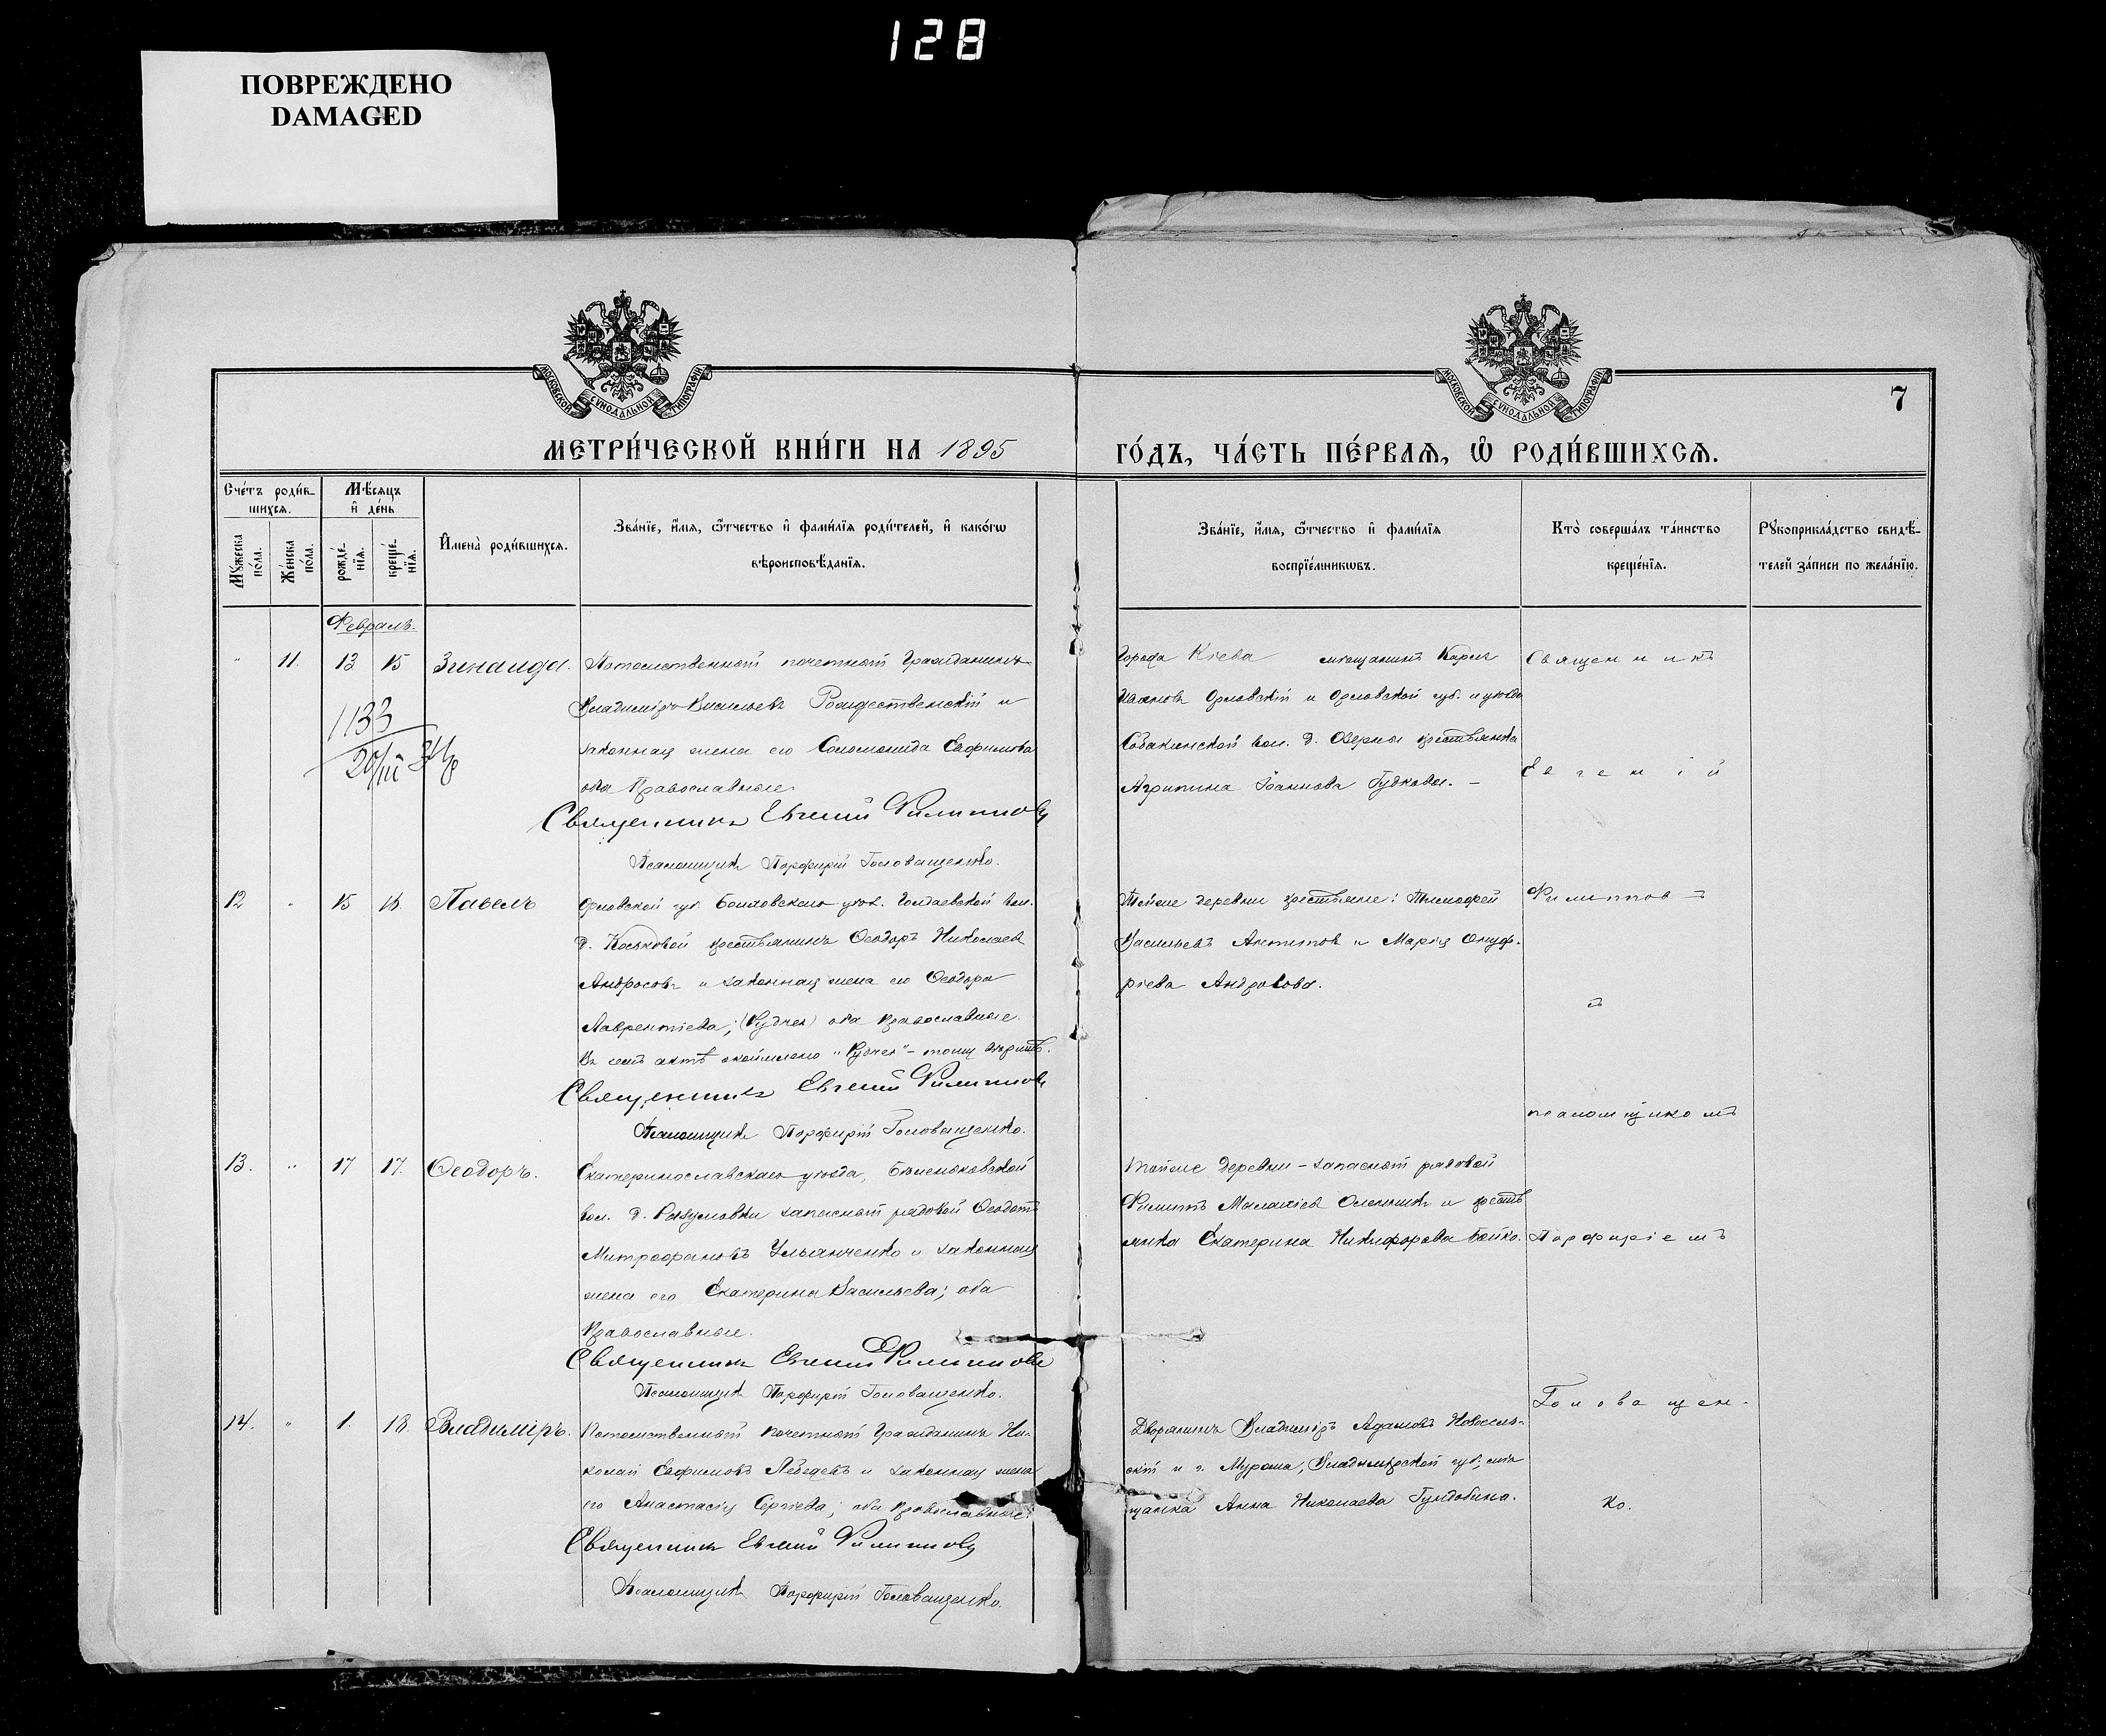 128
ПОВРЕЖДЕНО
DAMAGED
МОСКОВСКОЙ СѴНОДАЛЬНОЙ ТИПОГРАФІИ
МОСКОВСКОЙ СѴНОДАЛЬНОЙ ТИПОГРАФІИ
7
МЕТРИ́ЧЕСКОЙ КНИ́ГИ НА 1895
ГО́ДЪ, ЧА́СТЬ ПЕ́РВАѦ, Ѡ҆ РОДИ́ВШИХСѦ.
Сче́тъ роди́в-
шихсѧ.
Мѣ́сѧцъ
и҆ де́нь
Мꙋ́жеска по́ла.
Же́нска по́ла.
рожде́-
нїѧ.
креще́-
нїѧ.
И҆мена̀ роди́вшихсѧ.
Зва́нїе, и҆́мѧ, ѻ҆́тчество и҆ фами́лїѧ роди́телей, и҆ како́гѡ
вѣроисповѣ́данїѧ.
Зва́нїе, и҆́мѧ, ѻ҆́тчество и҆ фами́лїѧ
воспрїе́мникѡвъ.
Кто̀ соверша́лъ та́инство
креще́нїѧ.
Рꙋкоприкла́дство свидѣ́-
телей за́писи по жела́нїю.
Февраль.
" 11. 13 15 Зинаида. Потомственный почетный Гражданинъ
Владиміръ Васильевъ Рождественскій и
законная жена его Соломонида Евфимова
оба Православные.
1133
20/III
Священникъ Евгеній Филипповъ
Псаломщикъ Порфирій Головащенко.
Города Кіева мѣщанинъ Карпъ
Орловскій и Орловской губ. и уѣзда
вол. д. Озерны крестьянка
Агрипина Іоаннова Гудкова. –
Священникъ
Евгеній
12 " 15 16. Павелъ Орловской губ. Болховскаго уѣз. вол.
д. крестьянинъ Ѳеодоръ Николаевъ
Андросовъ и законная жена его Ѳеодора
Лаврентіева; оба Православные.
Священникъ Евгеній Филипповъ
Псаломщикъ Порфирій Головащенко.
Тойже деревни крестьяне: Тимофей
Васильевъ Антиповъ и Марія Онуф-
ріева Андросова.
Филиппов-
ъ
псаломщикомъ
13. " 17 17. Ѳеодоръ. Екатеринославскаго уѣзда,
вол. д. запасный рядовой Ѳеодотъ
Митрофановъ Ульянченко и законная
жена его Екатерина Васильева; оба
Православные.
Священникъ Евгеній Филипповъ
Псаломщикъ Порфирій Головащенко.
Тойже деревни – запасный рядовой
Филиппъ Малахіевъ и кресть
янка Екатерина Никифорова Бойко.
Порфиріемъ
Головащен-
ко.
14. " 1. 18. Владиміръ. Потомственный почетный Гражданинъ Ни-
колай Евфимовъ Лебедевъ и законная жена
его Анастасія Сергіева; оба Православные.
Священникъ Евгеній Филипповъ
Псаломщикъ Порфирій Головащенко.
Дворянинъ Владиміръ Адамовъ Новосель-
скій и г. Мурома, Владимірской губ., мѣ
щанка Анна Николаева Гундобина.